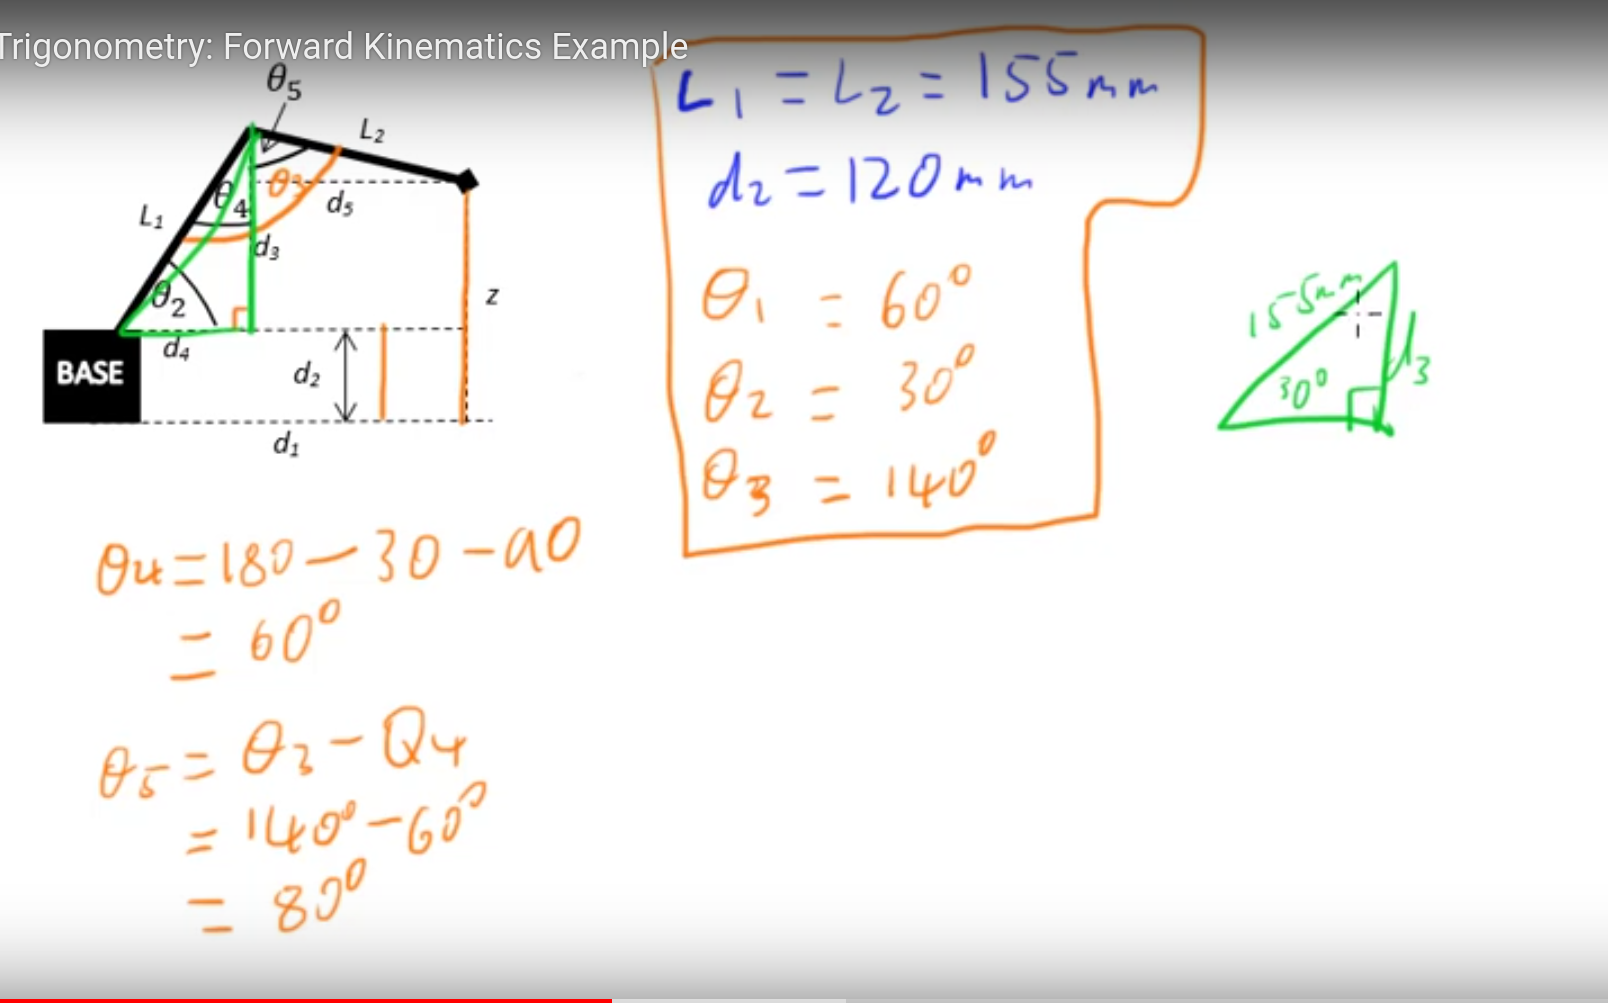 Trigonometry: Forward Kinematics Example
θ5
L2
θ3
θ4
d5
L1
d3
θ2
z
d4
BASE
d2
d1
L1 = L2 = 155mm
d2 = 120mm
θ1 = 60°
θ2 = 30°
θ3 = 140°
155mm
30°
d3
θ4 = 180 - 30 - 90
= 60°
θ5 = θ3 - θ4
= 140° - 60°
= 80°